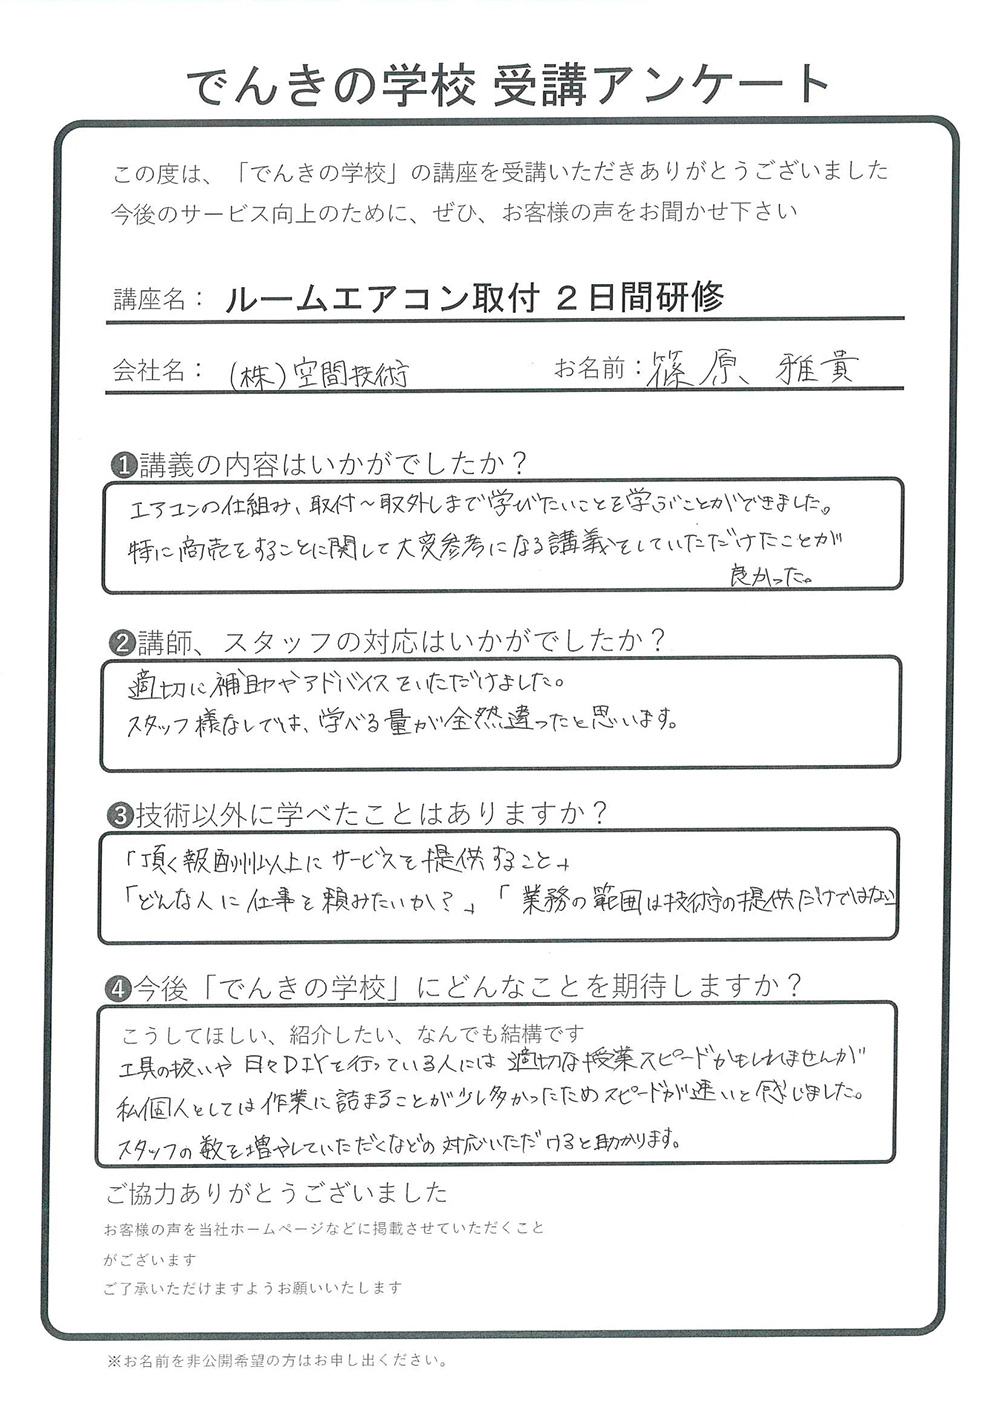 でんきの学校 受講アンケート
この度は、「でんきの学校」の講座を受講いただきありがとうございました
今後のサービス向上のために、ぜひ、お客様の声をお聞かせ下さい
講座名： ルームエアコン取付 ２日間研修
会社名： (株)空間技術 お名前：篠原 雅貴
❶講義の内容はいかがでしたか？
エアコンの仕組み、取付～取外しまで学びたいことを学ぶことができました。
特に商売をすることに関して大変参考になる講義をしていただけたことが
良かった。
❷講師、スタッフの対応はいかがでしたか？
適切に補助やアドバイスをいただけました。
スタッフ様なしでは、学べる量が全然違ったと思います。
❸技術以外に学べたことはありますか？
「頂く報酬以上にサービスを提供すること」
「どんな人に仕事を頼みたいか？」「業務の範囲は技術の提供だけではない」
❹今後「でんきの学校」にどんなことを期待しますか？
こうしてほしい、紹介したい、なんでも結構です
工具の扱いや日々DIYを行っている人には適切な授業スピードかもしれませんが
私個人としては作業に詰まることが少し多かったためスピードが速いと感じました。
スタッフの数を増やしていただくなどの対応いただけると助かります。
ご協力ありがとうございました
お客様の声を当社ホームページなどに掲載させていただくこと
がございます
ご了承いただけますようお願いいたします
※お名前を非公開希望の方はお申し出ください。